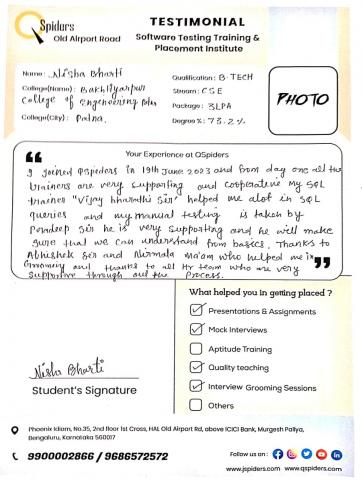 QSpiders
Old Airport Road
TESTIMONIAL
Software Testing Training &
Placement Institute
Name: Nisha Bharti
College(Name): Bakhtiyarpur
College of Engineering
College(City): Patna.
Qualification: B.TECH
Stream: CSE
Package: 3LPA
Degree %: 73.2%
PHOTO
Your Experience at QSpiders
I joined QSpiders in 19th June 2023 and from day one all the
trainers are very supporting and cooperative my SQL
trainer "Vijay bharathi Sir" helped me alot in SQL
queries and my manual testing is taken by
Pradeep Sir he is very supporting and he will make
sure that we can understand from basics. Thanks to
Abhishek Sir and Nirmala ma'am who helped me in
Grooming and thanks to all Hr team who are very
supportive through out the process.
What helped you in getting placed ?
Presentations & Assignments
Mock Interviews
Aptitude Training
Quality teaching
Interview Grooming Sessions
Others
Nisha Bharti
Student's Signature
Phoenix Idiam, No.35, 2nd floor 1st Cross, HAL Old Airport Rd, above ICICI Bank, Murgesh Pallya,
Bengaluru, Karnataka 560017
9900002866 / 9686572572
Follow us on :
www.jspiders.com www.qspiders.com